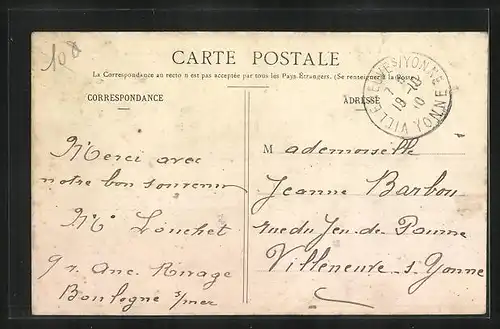 108
CARTE POSTALE
La Correspondance au recto n'est pas acceptée par tous les Pays Étrangers. (Se renseigner à la Poste)
CORRESPONDANCE
ADRESSE
Merci avec
notre bon souvenir
Louchet
9 r. Anc. Rivage
Boulogne s/mer
Mademoiselle
Jeanne Barbou
rue du Jeu de Paume
Villeneuve s Yonne
YONNE
18-12
10